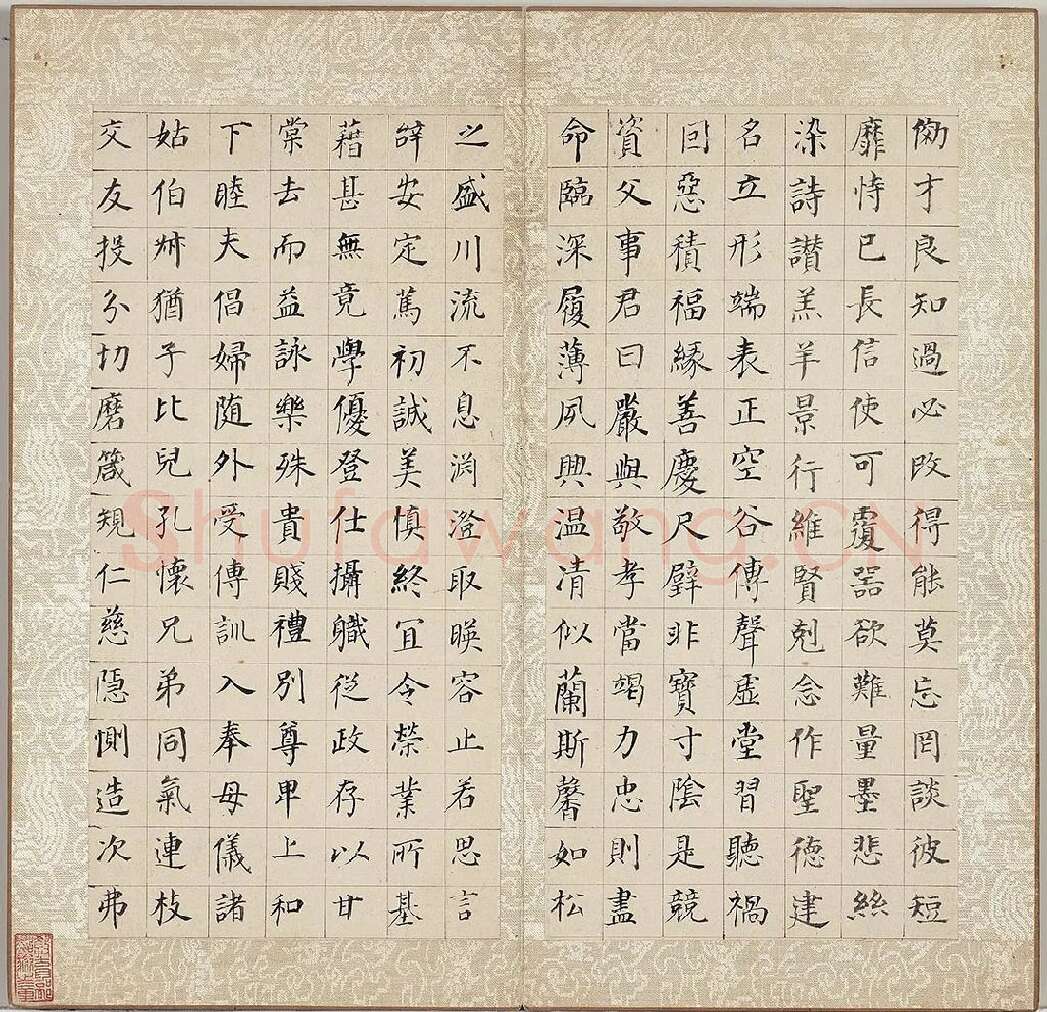 効才良知過必改得能莫忘罔談彼短
靡恃己長信使可覆器欲難量墨悲絲
染詩讃羔羊景行維賢剋念作聖德建
名立形端表正空谷傳聲虛堂習聽禍
因惡積福緣善慶尺璧非寶寸陰是競
資父事君曰嚴與敬孝當竭力忠則盡
命臨深履薄夙興温凊似蘭斯馨如松
之盛川流不息淵澄取暎容止若思言
辭安定篤初誠美慎終宜令榮業所基
藉甚無竟學優登仕攝職從政存以甘
棠去而益詠樂殊貴賤禮別尊卑上和
下睦夫倡婦随外受傅訓入奉母儀諸
姑伯叔猶子比兒孔懷兄弟同氣連枝
交友投分切磨箴規仁慈隱惻造次弗
Shufawang.CN